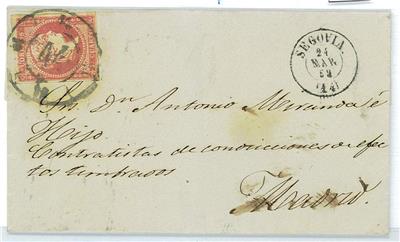 SEGOVIA
24
MAR
(14)
Sr. Dn. Antonio Miranda é
Hijo
Contratistas de conducciones de efec
tos timbrados
Madrid.